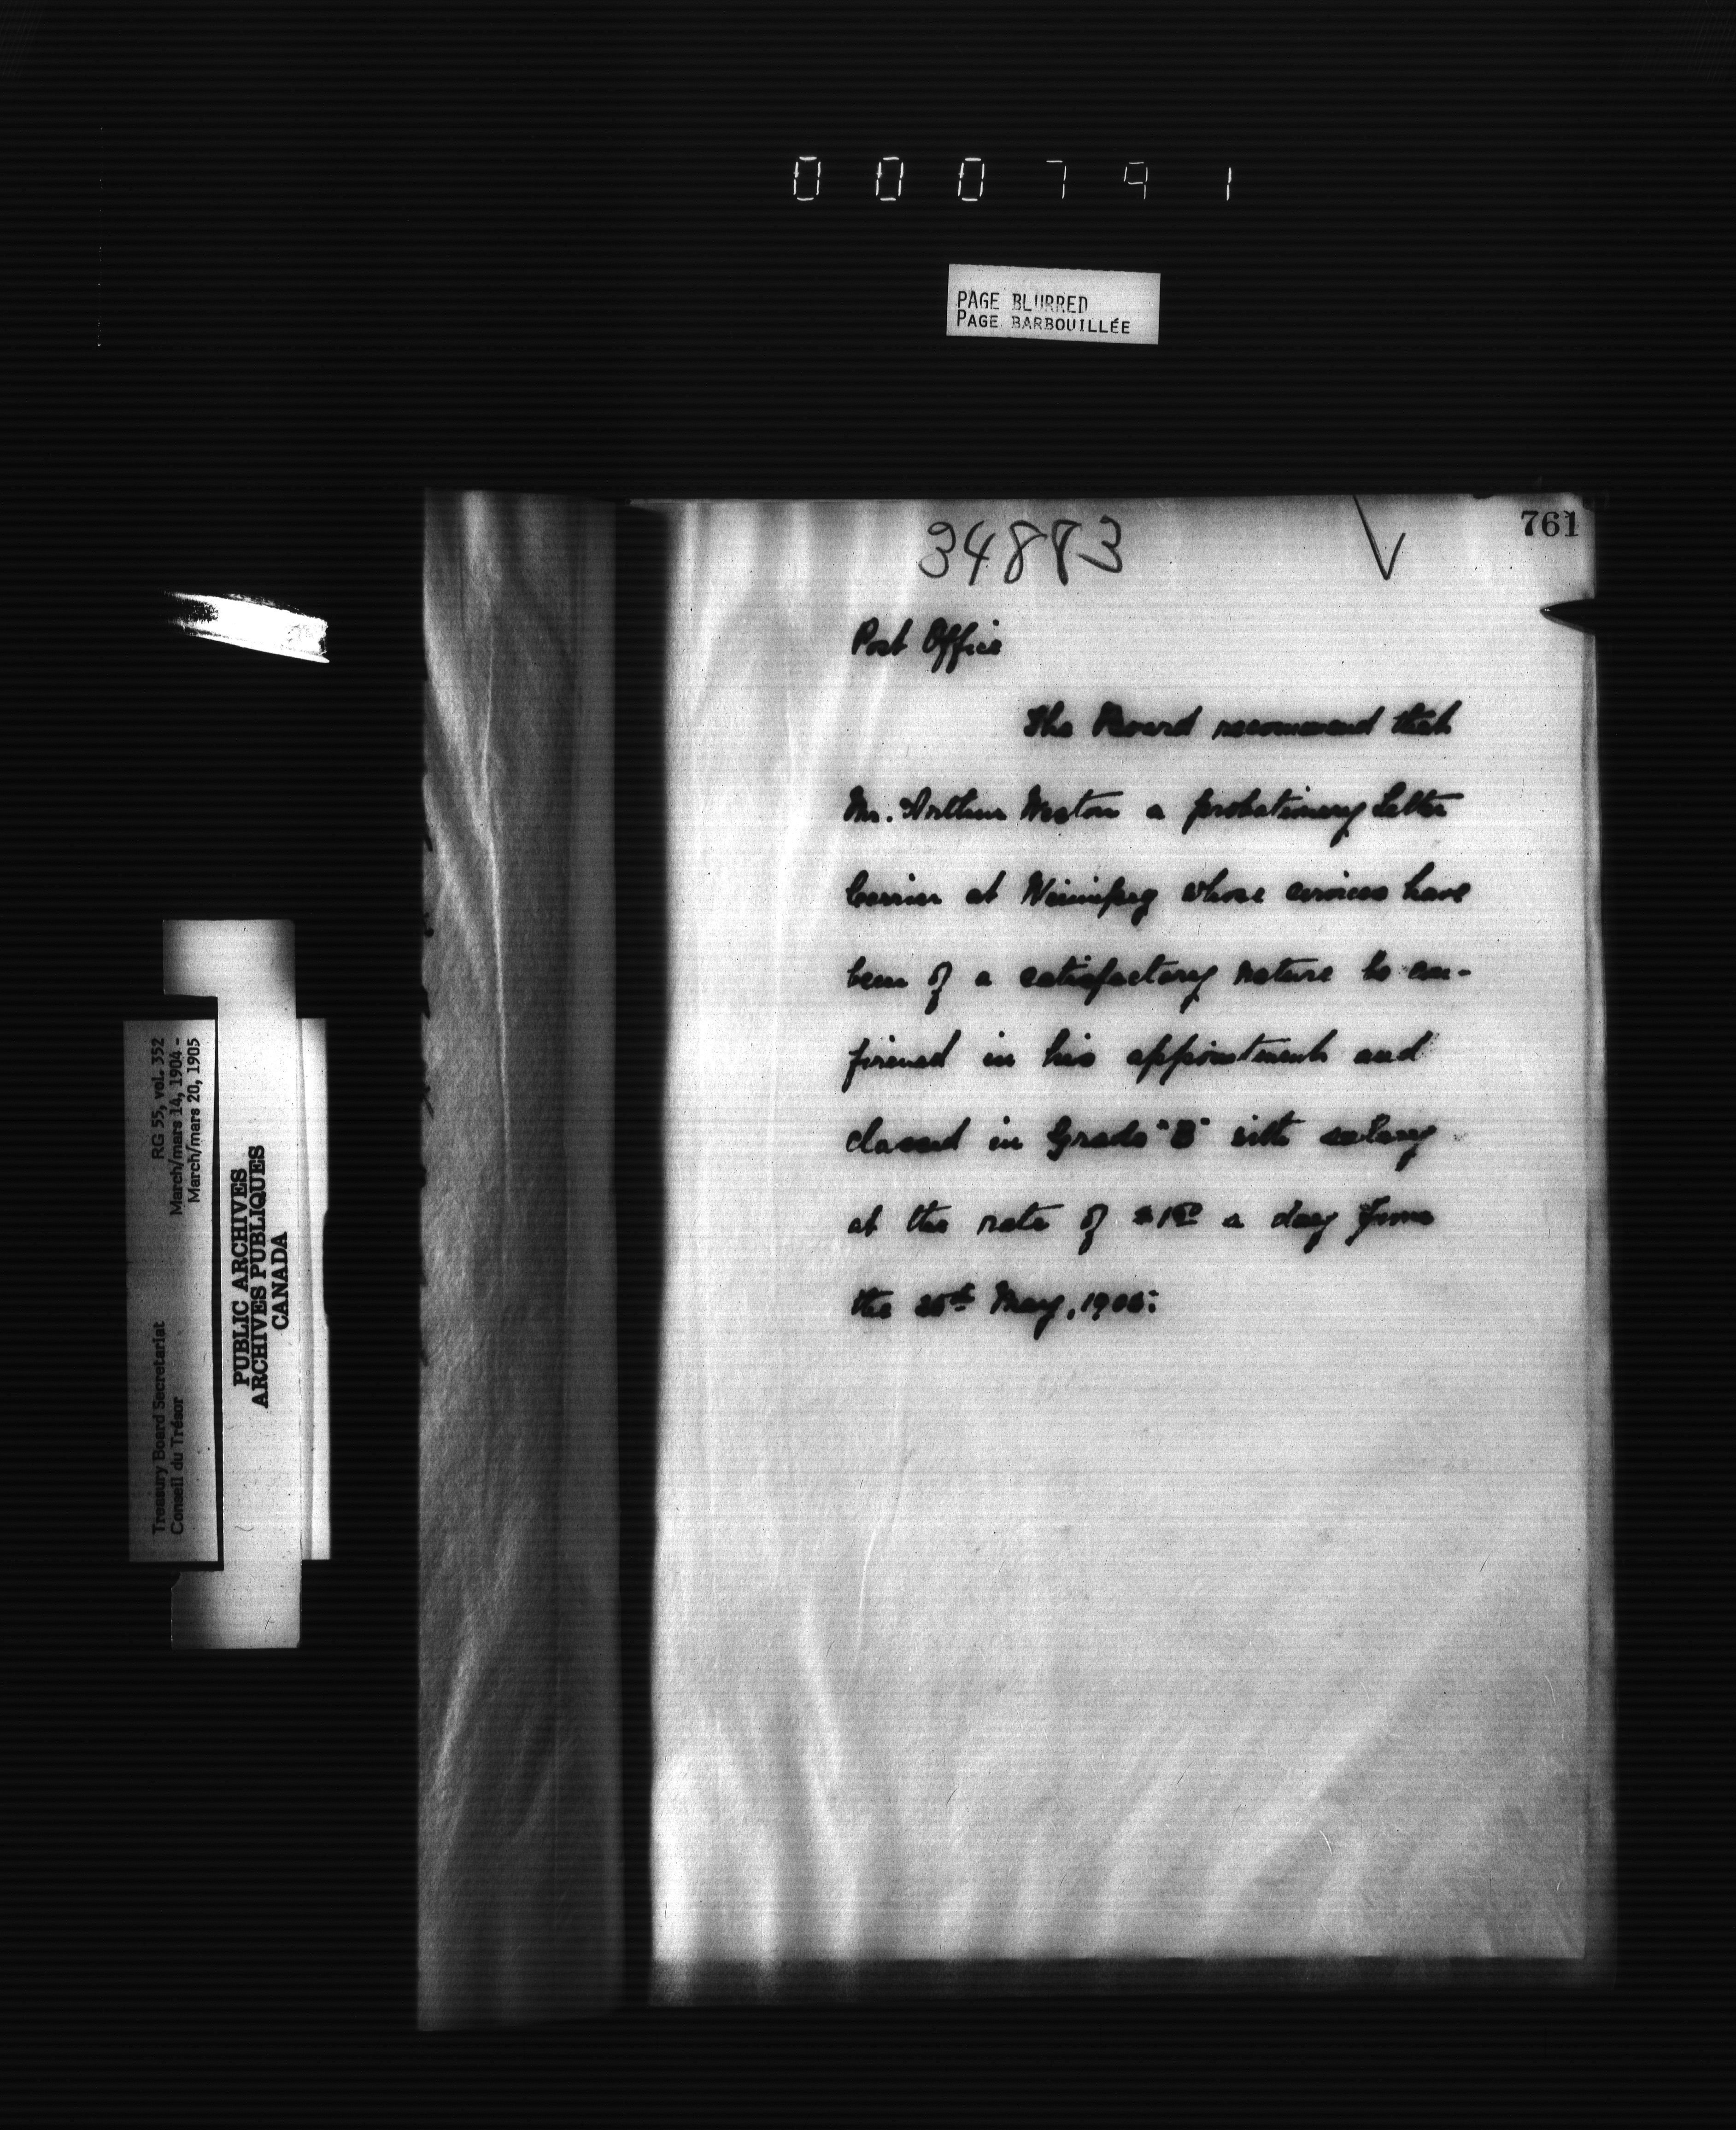 000791
PAGE BLURRED
PAGE BARBOUILLÉE
761
34883
Post Office
The Board recommend that
Mr. Arthur Weston a probationary Letter
Carrier at Winnipeg whose services have
been of a satisfactory nature be con-
firmed in his appointment and
classed in Grade "B" with salary
at the rate of a day from
the May, 
RG 55, vol. 352
March/mars 14, 1904 -
March/mars 20, 1905
Treasury Board Secretariat
Conseil du Trésor
PUBLIC ARCHIVES
ARCHIVES PUBLIQUES
CANADA